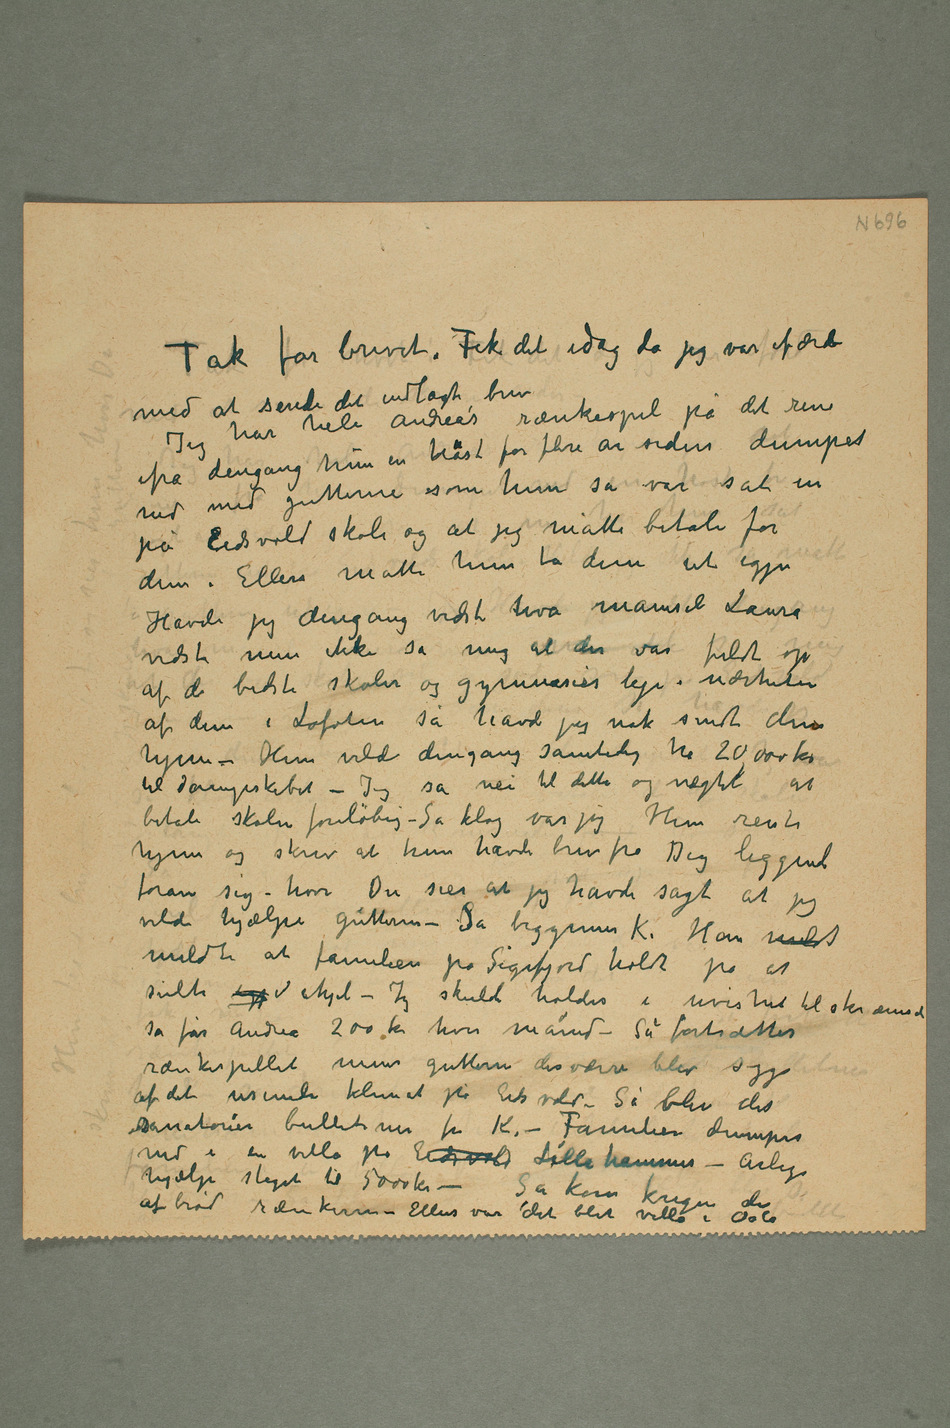 N 696
Tak for brevet. Fik det idag da jeg var ifærd
med at sende det indlagte brev
Jeg har hele Andrea's rænkespil på det rene
ifra dengang hun en høst for flere år siden dumpet
ned med gutterne som hun sa var sat in
på Eidsvold skole og at jeg måtte betale for
dem. Ellers måtte hun ta dem ut igjen
Havde jeg dengang vidst hva mamsel Laura
vidste men ikke sa mig at der var fuldt op
af de bedste skoler og gymnasier lige i nærheten
af dem i Lofoten så havde jeg nok sendt dem
hjem – Hun vilde dengang samtidig ha 20,000 kr
til dampskibet – Jeg sa nei til dette og nægtet at
betale skolen foreløbig – Så klog var jeg Hun reiste
hjem og skrev at hun havde brev fra Dig liggende
foran sig – hvor Du sier at jeg havde sagt at jeg
vilde hjælpe gutterne – Så begynner K. Han meldt
meldte at familien på Sigerfjord holdt på at
sulte ihjel – Jeg skulde holdes i uvished til skræmsel
så får Andrea 200 kr hver måned – Så fortsættes
rænkespillet mens gutterne desværre blev syge
af det usunde klimat på Eidsvold – Så blev det
sanatorier bulletiner fra K. – Familien dumpes
ned i en villa på Eidsvold Lillehammer – Årlige
hjælp steget til 5000 kr – Så kom krigen der
afbrød rænkerne – Ellers var det blet villa i Oslo